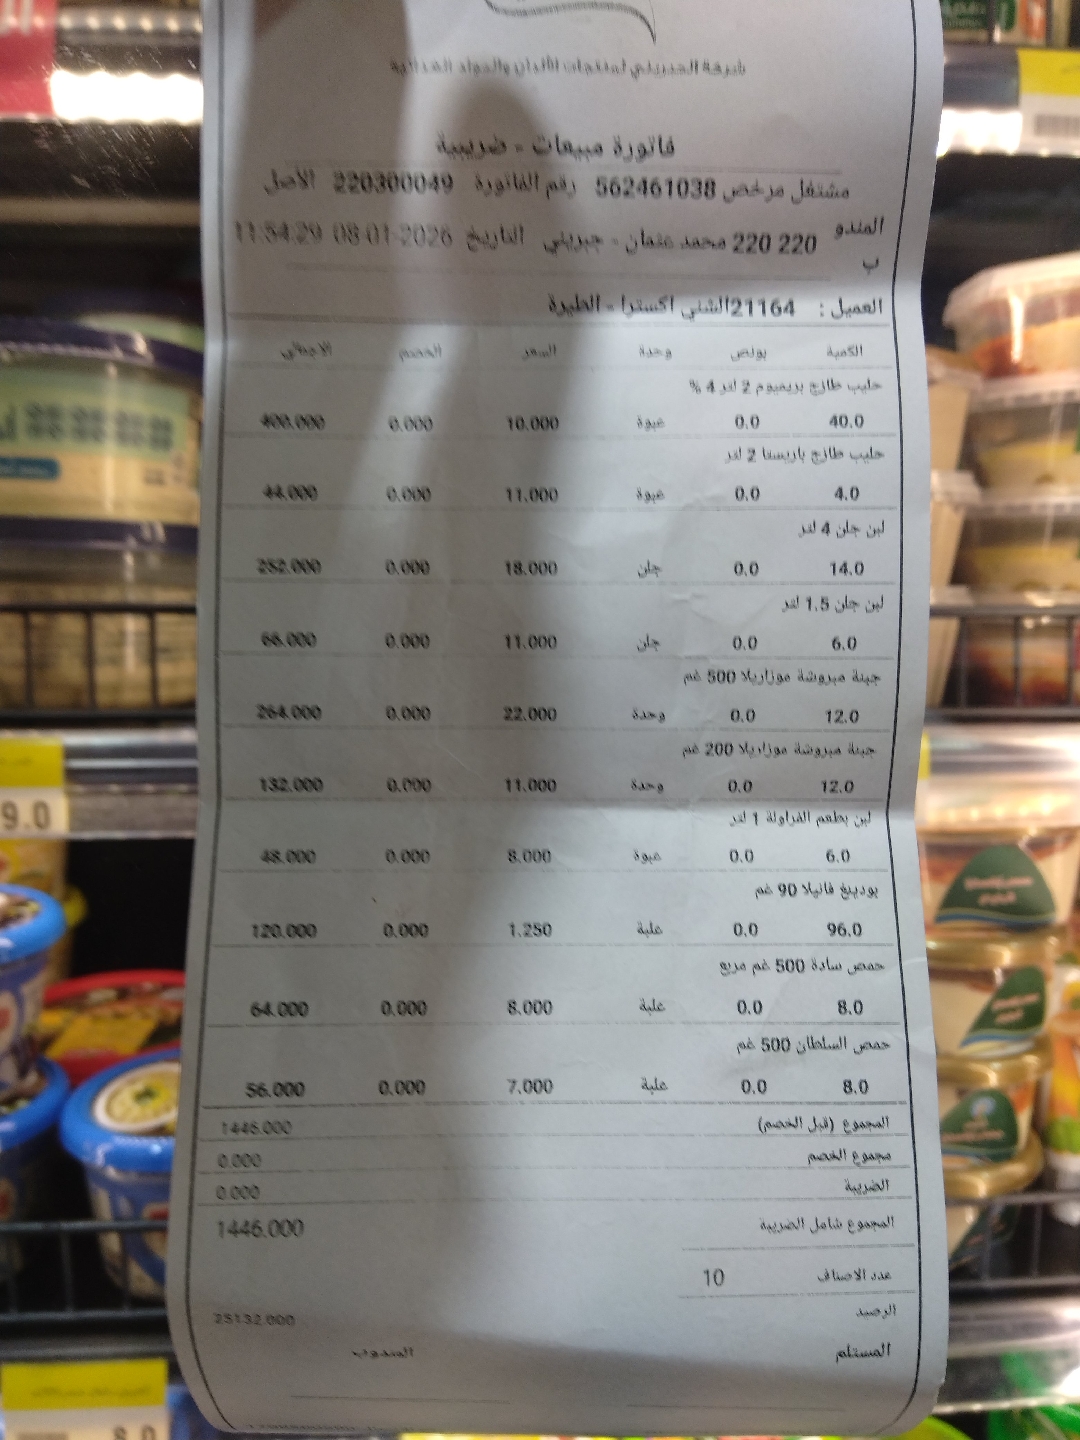 شركة الجبريني لمنتجات الألبان والمواد الغذائية
فاتورة مبيعات - ضريبية
مشتغل مرخص 562461038 رقم الفاتورة 220300049 الأصل
المندوب 220 220 محمد عثمان - جبريني التاريخ 08-01-2026 11:54:29
العميل : 21164الشني اكسترا - الطيرة
الكمية بونص وحدة السعر الخصم الاجمالي
حليب طازج بريميوم 2 لتر 4 %
40.0 0.0 عبوة 10.000 0.000 400.000
حليب طازج باريستا 2 لتر
4.0 0.0 عبوة 11.000 0.000 44.000
لبن جلن 4 لتر
14.0 0.0 جلن 18.000 0.000 252.000
لبن جلن 1.5 لتر
6.0 0.0 جلن 11.000 0.000 66.000
جبنة مبروشة موزاريلا 500 غم
12.0 0.0 وحدة 22.000 0.000 264.000
جبنة مبروشة موزاريلا 200 غم
12.0 0.0 وحدة 11.000 0.000 132.000
لبن بطعم الفراولة 1 لتر
6.0 0.0 عبوة 8.000 0.000 48.000
بودينغ فانيلا 90 غم
96.0 0.0 علبة 1.250 0.000 120.000
حمص سادة 500 غم مربع
8.0 0.0 علبة 8.000 0.000 64.000
حمص السلطان 500 غم
8.0 0.0 علبة 7.000 0.000 56.000
المجموع (قبل الخصم) 1446.000
مجموع الخصم 0.000
الضريبة 0.000
المجموع شامل الضريبة 1446.000
عدد الاصناف 10
الرصيد 25132.000
المستلم المندوب
9.0
8.0